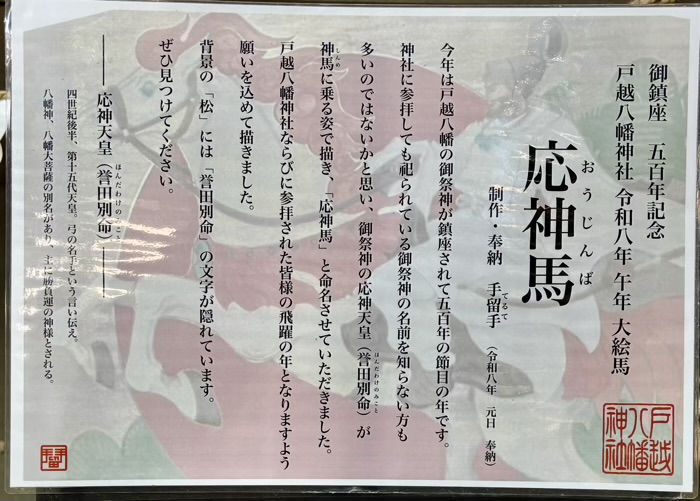 御鎮座 五百年記念
戸越八幡神社 令和八年 午年 大絵馬
おうじんば
応神馬
制作・奉納 手留手 (令和八年 元日 奉納)
てるて
今年は戸越八幡の御祭神が鎮座されて五百年の節目の年です。
神社に参拝しても祀られている御祭神の名前を知らない方も
多いのではないかと思い、御祭神の応神天皇(誉田別命)が
ほんだわけのみこと
神馬に乗る姿で描き、「応神馬」と命名させていただきました。
しんめ
戸越八幡神社ならびに参拝された皆様の飛躍の年となりますよう
願いを込めて描きました。
背景の「松」には「誉田別命」の文字が隠れています。
ぜひ見つけてください。
―― 応神天皇(誉田別命) ――
ほんだわけのみこと
四世紀後半、第十五代天皇。弓の名手という言い伝え。
八幡神、八幡大菩薩の別名があり、主に勝負運の神様とされる。
戸越
八幡
神社